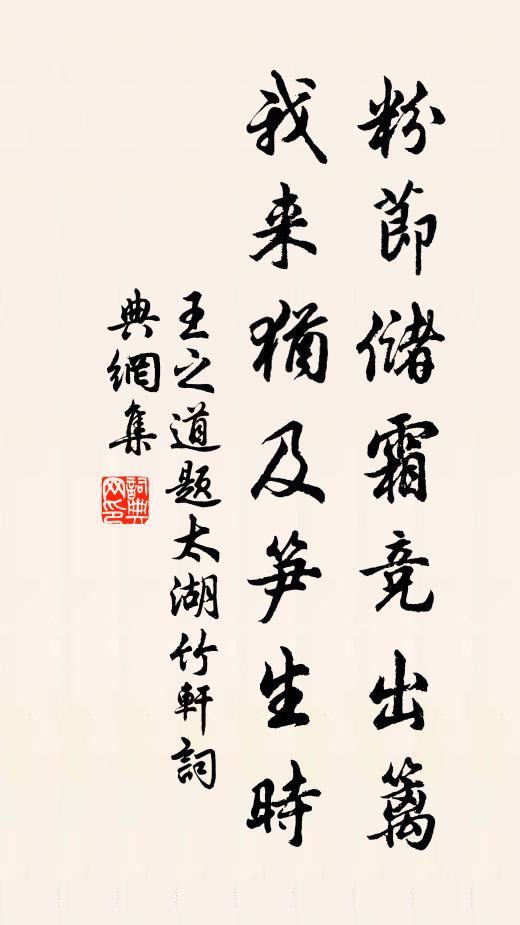 粉節儲霜竞出篱
我来猶及笋生時
王之道题太湖竹軒詞
典網集
詞典網印